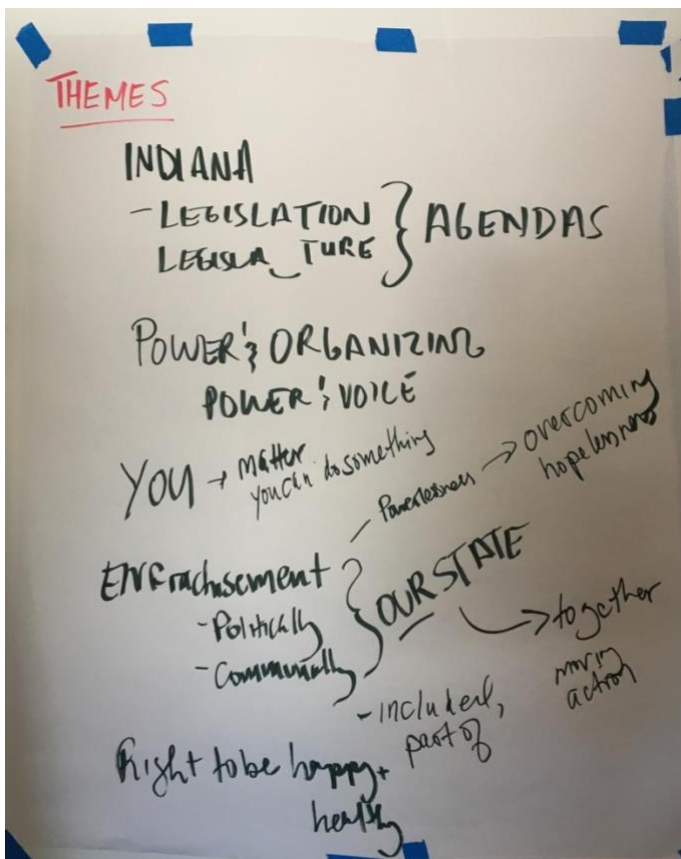 THEMES
INDIANA
- LEGISLATION } AGENDAS
LEGISLA_TURE
POWER & ORGANIZING
POWER & VOICE
YOU → matter
you can do something
- Powerlessness → overcoming
hopelessness
ENFrachisement } OUR STATE
- Politically
- Communally
→ together
moving
action
- included,
part of
Right to be happy +
healthy